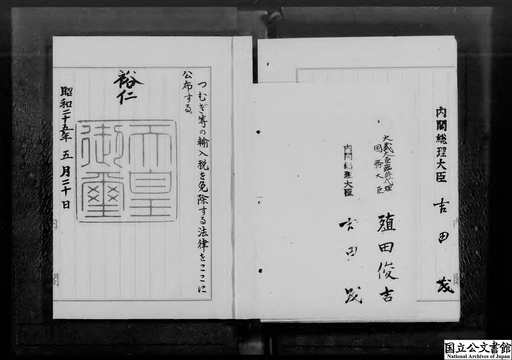 つむぎ等の輸入税を免除する法律をここに
公布する。
裕仁
天皇
御璽
昭和二十五年五月二十日
内閣総理大臣 吉田茂
大蔵大臣臨時代理
国務大臣 殖田俊吉
内閣総理大臣 吉田茂
国立公文書館
National Archives of Japan